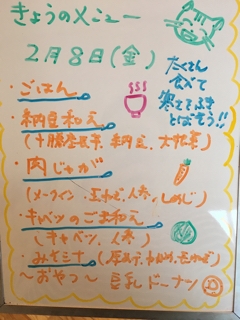 きょうのメニュー
2月8日(金)
たくさん
食べて
寒さをふき
とばそう!!
・ごはん
・納豆和え
納豆、大根葉)
・肉じゃが
(メークイン、玉ねぎ、人参、しめじ)
・キャベツのごま和え
(キャベツ、人参)
・みそミナ
(厚あげ、わかめ、玉ねぎ)
〜おやつ〜 豆乳ドーナツ